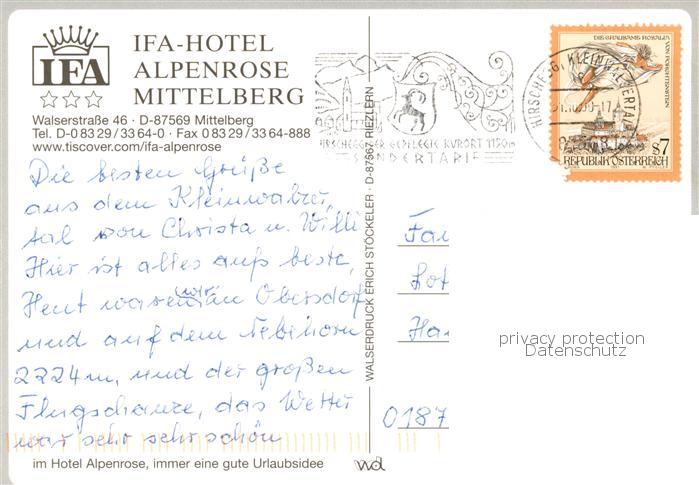 IFA
IFA-HOTEL
ALPENROSE
MITTELBERG
Walserstraße 46 · D-87569 Mittelberg
Tel. D-0 83 29 / 33 64-0 · Fax 0 83 29 / 33 64-888
www.tiscover.com/ifa-alpenrose
Die besten Grüße
aus dem Kleinwalser
tal von Christa u. Willi
Hier ist alles aufs beste,
Heut waren wir in Obersdorf
und auf dem Nebelhorn
2224m, und der großen
Flugschanze, das Wetter
war sehr sehr schön
im Hotel Alpenrose, immer eine gute Urlaubsidee
WALSERDRUCK ERICH STÖCKELER · D-87567 RIEZLERN
HIRSCHEGG, KLEINWALSERTAL
HIRSCHEGG GEPFLEGTE KURORT 1150m
SONDERTARIF
DIE GRAUSAME ROSALIA VON FORCHTENSTEIN
REPUBLIK ÖSTERREICH
S7
Fam
Lot
Ha
0187
privacy protection
Datenschutz
wd